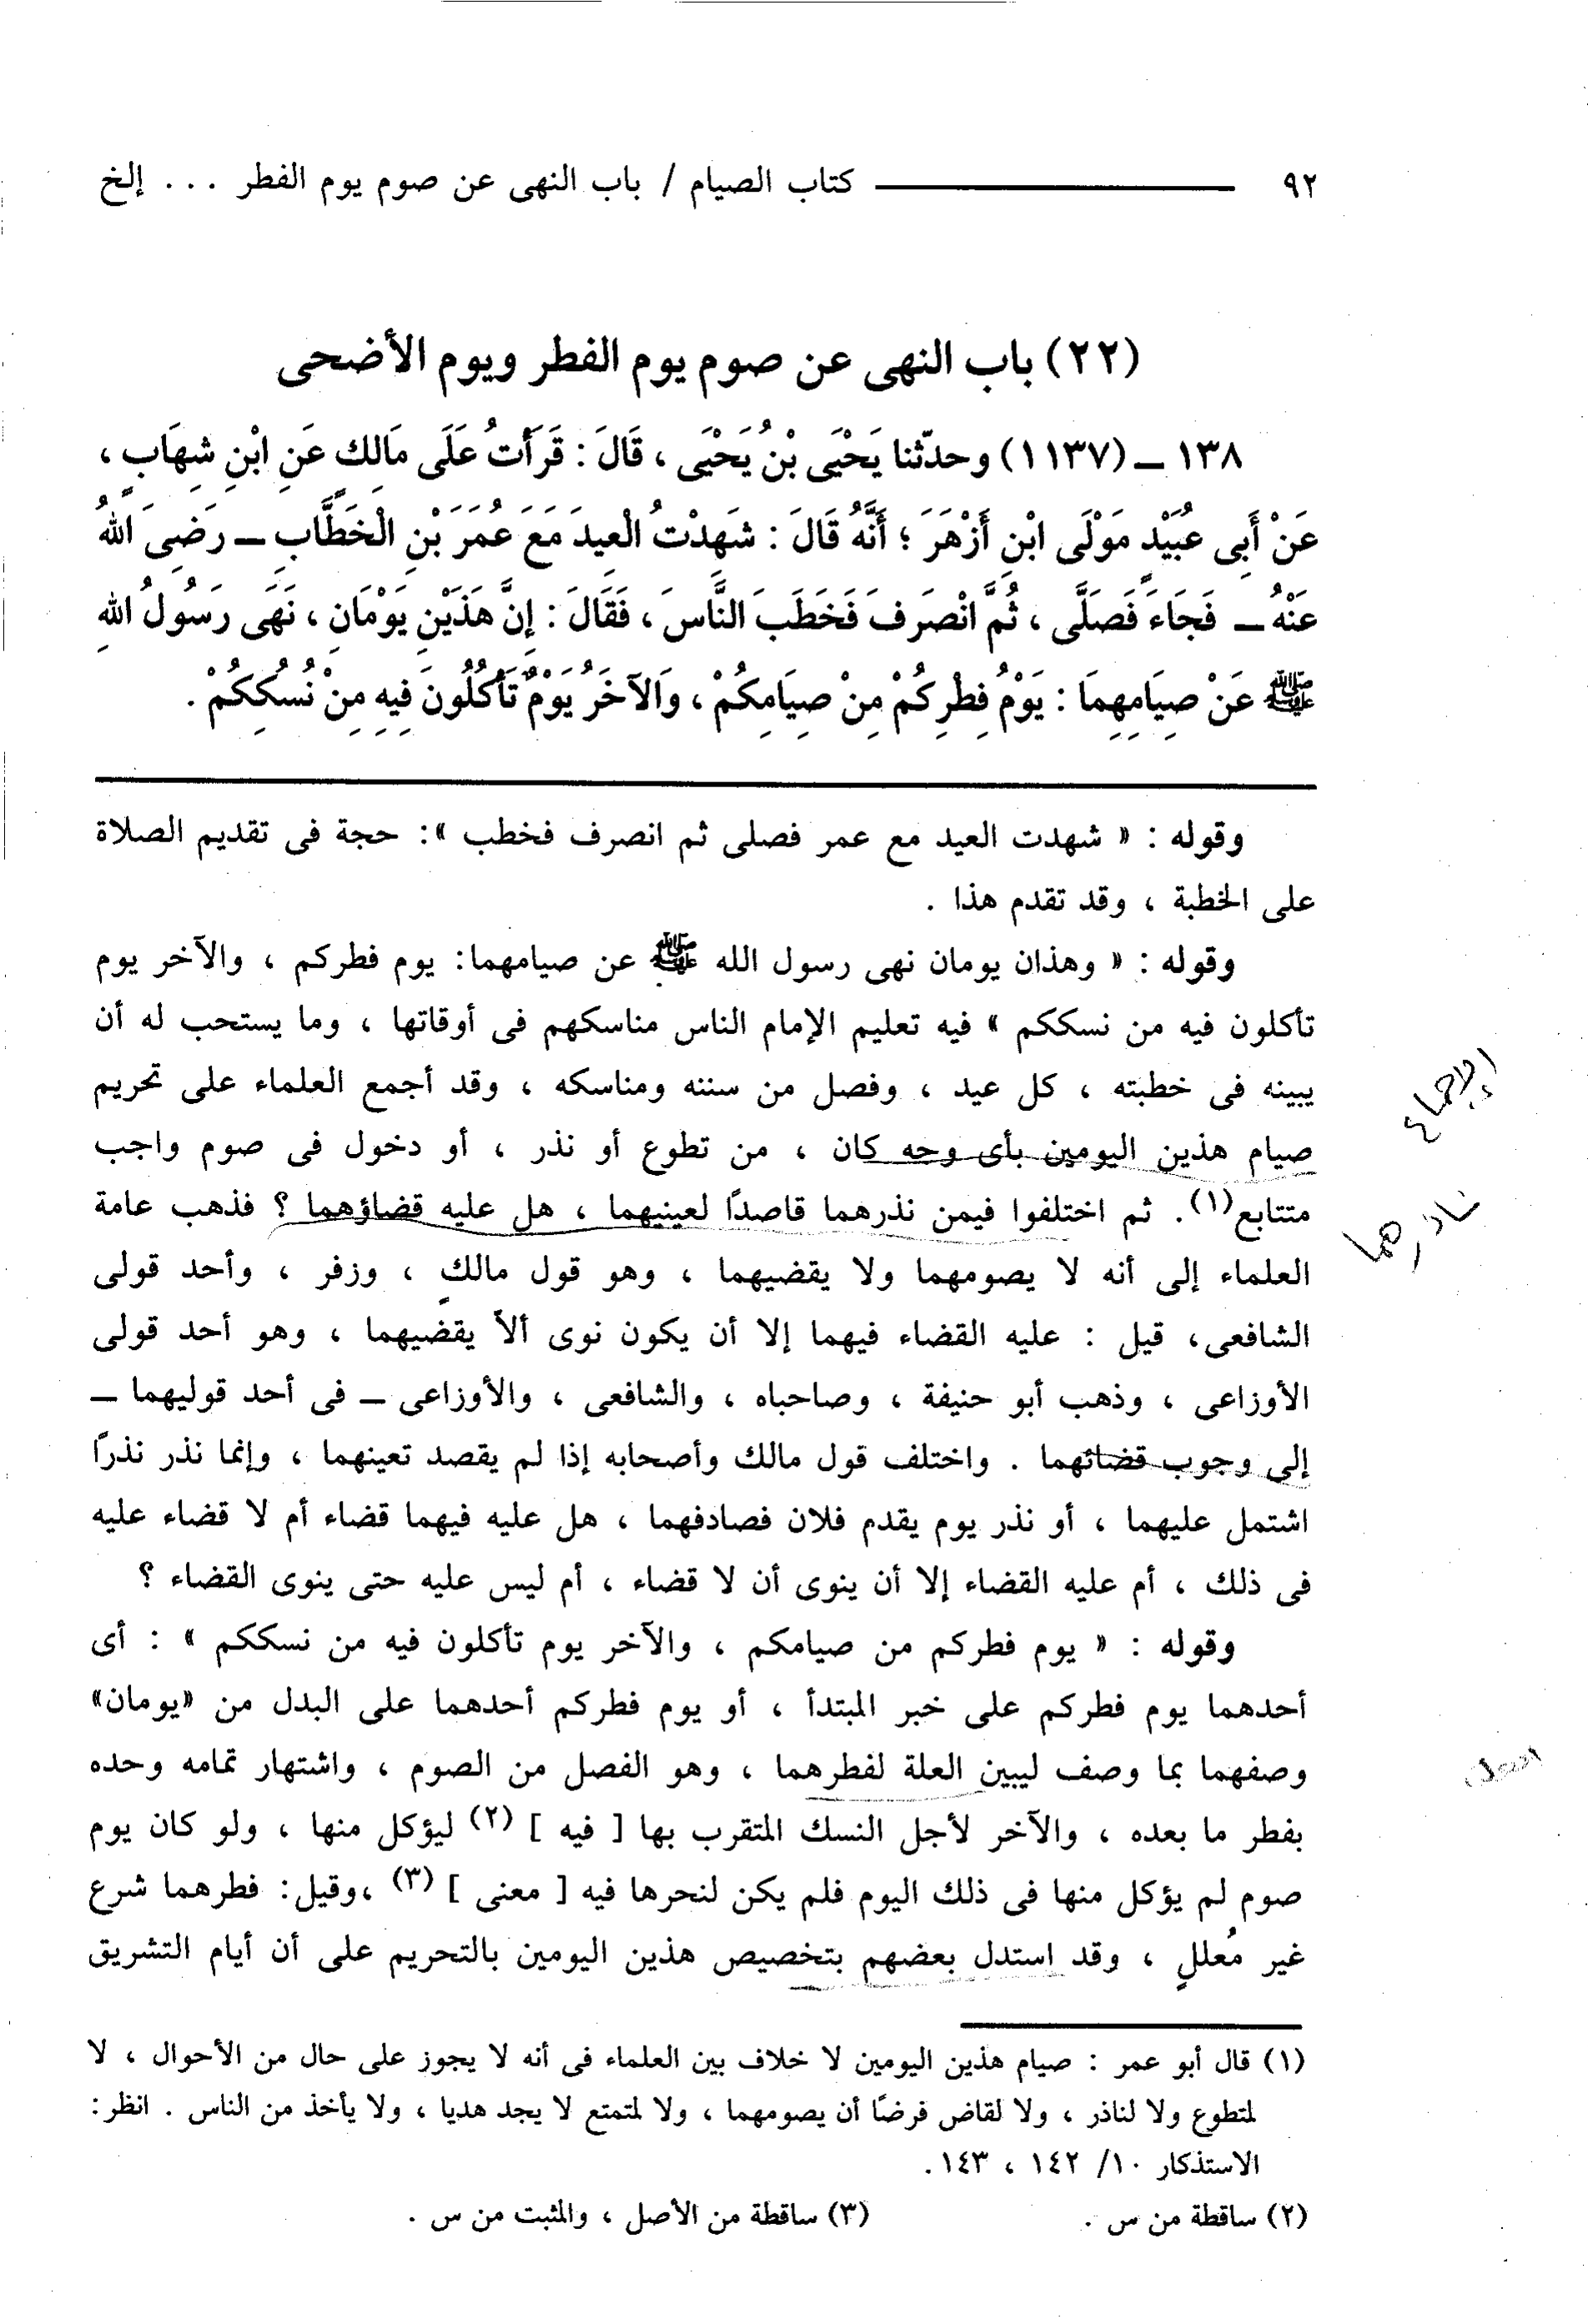 ٩٢ ــــــــــــ كتاب الصيام / باب النهى عن صوم يوم الفطر ... إلخ
(٢٢) باب النهى عن صوم يوم الفطر ويوم الأضحى
١٣٨ ـ (١١٣٧) وحدّثنا يَحْيَى بْنُ يَحْيَى ، قَالَ : قَرَأْتُ عَلَى مَالِكٍ عَنِ ابْنِ شِهَابٍ ،
عَنْ أَبِى عُبَيْدٍ مَوْلَى ابْنِ أَزْهَرَ ؛ أَنَّهُ قَالَ : شَهِدْتُ الْعِيدَ مَعَ عُمَرَ بْنِ الْخَطَّابِ ـ رَضِىَ اللهُ
عَنْهُ ـ فَجَاءَ فَصَلَّى ، ثُمَّ انْصَرَفَ فَخَطَبَ النَّاسَ ، فَقَالَ : إِنَّ هَذَيْنِ يَوْمَانِ ، نَهَى رَسُولُ اللهِ
ﷺ عَنْ صِيَامِهِمَا : يَوْمُ فِطْرِكُمْ مِنْ صِيَامِكُمْ ، وَالآخَرُ يَوْمٌ تَأْكُلُونَ فِيهِ مِنْ نُسُكِكُمْ .
وقوله : « شهدت العيد مع عمر فصلى ثم انصرف فخطب »: حجة فى تقديم الصلاة
على الخطبة ، وقد تقدم هذا .
وقوله : « وهذان يومان نهى رسول الله ﷺ عن صيامهما: يوم فطركم ، والآخر يوم
تأكلون فيه من نسككم » فيه تعليم الإمام الناس مناسكهم فى أوقاتها ، وما يستحب له أن
يبينه فى خطبته ، كل عيد ، وفصل من سننه ومناسكه ، وقد أجمع العلماء على تحريم
الإجماع
صيام هذين اليومين بأى وجه كان ، من تطوع أو نذر ، أو دخول فى صوم واجب
متتابع(١). ثم اختلفوا فيمن نذرهما قاصدًا لعينيهما ، هل عليه قضاؤهما ؟ فذهب عامة
ناذرهما
العلماء إلى أنه لا يصومهما ولا يقضيهما ، وهو قول مالكٍ ، وزفر ، وأحد قولى
الشافعى، قيل : عليه القضاء فيهما إلا أن يكون نوى ألاّ يقضيهما ، وهو أحد قولى
الأوزاعى ، وذهب أبو حنيفة ، وصاحباه ، والشافعى ، والأوزاعى ـ فى أحد قوليهما ـ
إلى وجوب قضائهما . واختلف قول مالك وأصحابه إذا لم يقصد تعينهما ، وإنما نذر نذرًا
اشتمل عليهما ، أو نذر يوم يقدم فلان فصادفهما ، هل عليه فيهما قضاء أم لا قضاء عليه
فى ذلك ، أم عليه القضاء إلا أن ينوى أن لا قضاء ، أم ليس عليه حتى ينوى القضاء ؟
وقوله : « يوم فطركم من صيامكم ، والآخر يوم تأكلون فيه من نسككم » : أى
أحدهما يوم فطركم على خبر المبتدأ ، أو يوم فطركم أحدهما على البدل من «يومان»
وصفهما بما وصف ليبين العلة لفطرهما ، وهو الفصل من الصوم ، واشتهار تمامه وحده
بفطر ما بعده ، والآخر لأجل النسك المتقرب بها [ فيه ] (٢) ليؤكل منها ، ولو كان يوم
صوم لم يؤكل منها فى ذلك اليوم فلم يكن لنحرها فيه [ معنى ] (٣) ،وقيل: فطرهما شرع
غير مُعللٍ ، وقد استدل بعضهم بتخصيص هذين اليومين بالتحريم على أن أيام التشريق
(١) قال أبو عمر : صيام هذين اليومين لا خلاف بين العلماء فى أنه لا يجوز على حال من الأحوال ، لا
لمتطوع ولا لناذر ، ولا لقاض فرضًا أن يصومهما ، ولا لمتمتع لا يجد هديا ، ولا يأخذ من الناس . انظر:
الاستذكار ١٠/ ١٤٢ ، ١٤٣ .
(٢) ساقطة من س . (٣) ساقطة من الأصل ، والمثبت من س .